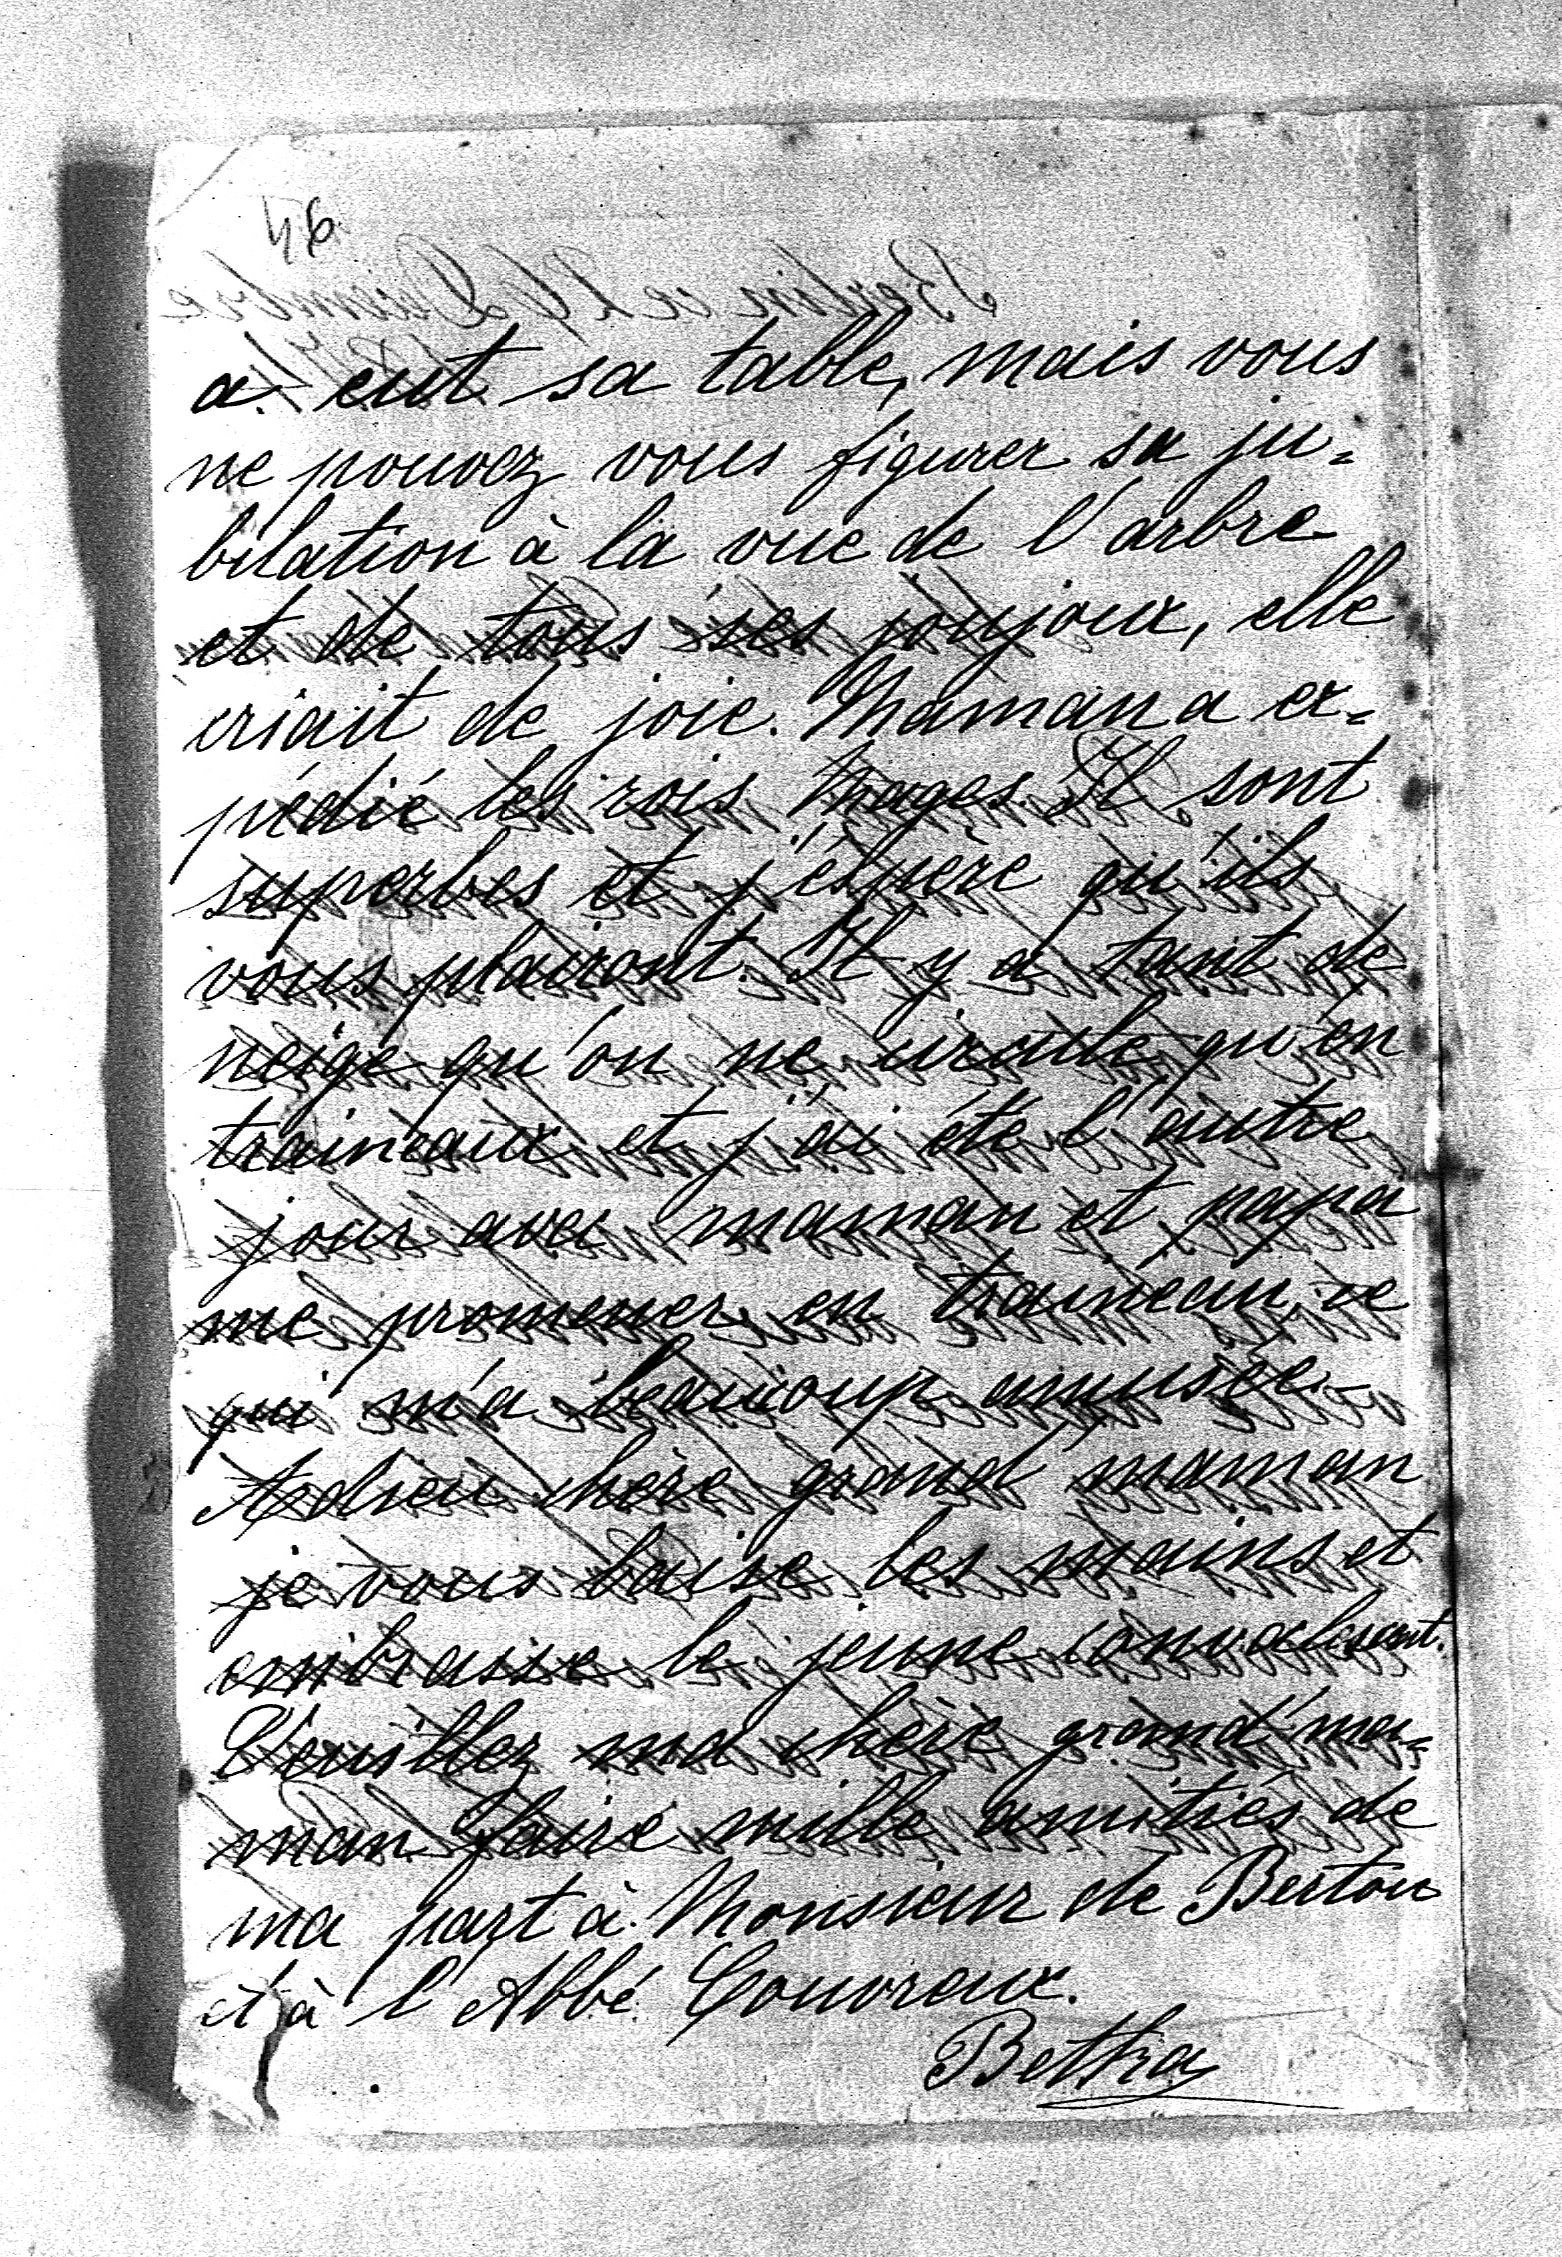 46
a eut sa table, mais vous
ne pouvez vous figurer sa ju=
bilation à la vue de l'arbre
et de tous ses joujoux, elle
criait de joie. Maman a ex=
pédié les rois Mages. Il sont
superbes et j'éspère qu'ils
vous plairont. Il y a tant de
neige qu'on ne circule qu'en
traineaux et j'ai été l'autre
jour avec maman et papa
me promener en traineau, ce
qui m'a beaucoup amusée.
Adieu chère grand maman
je vous baise les mains et
embrasse le jeune convalesant.
Veuillez ma chère grand'ma=
man faire mille amitiés de
ma part à Monsieur de Bertou
et à l'Abbé Couvreux.
Betka